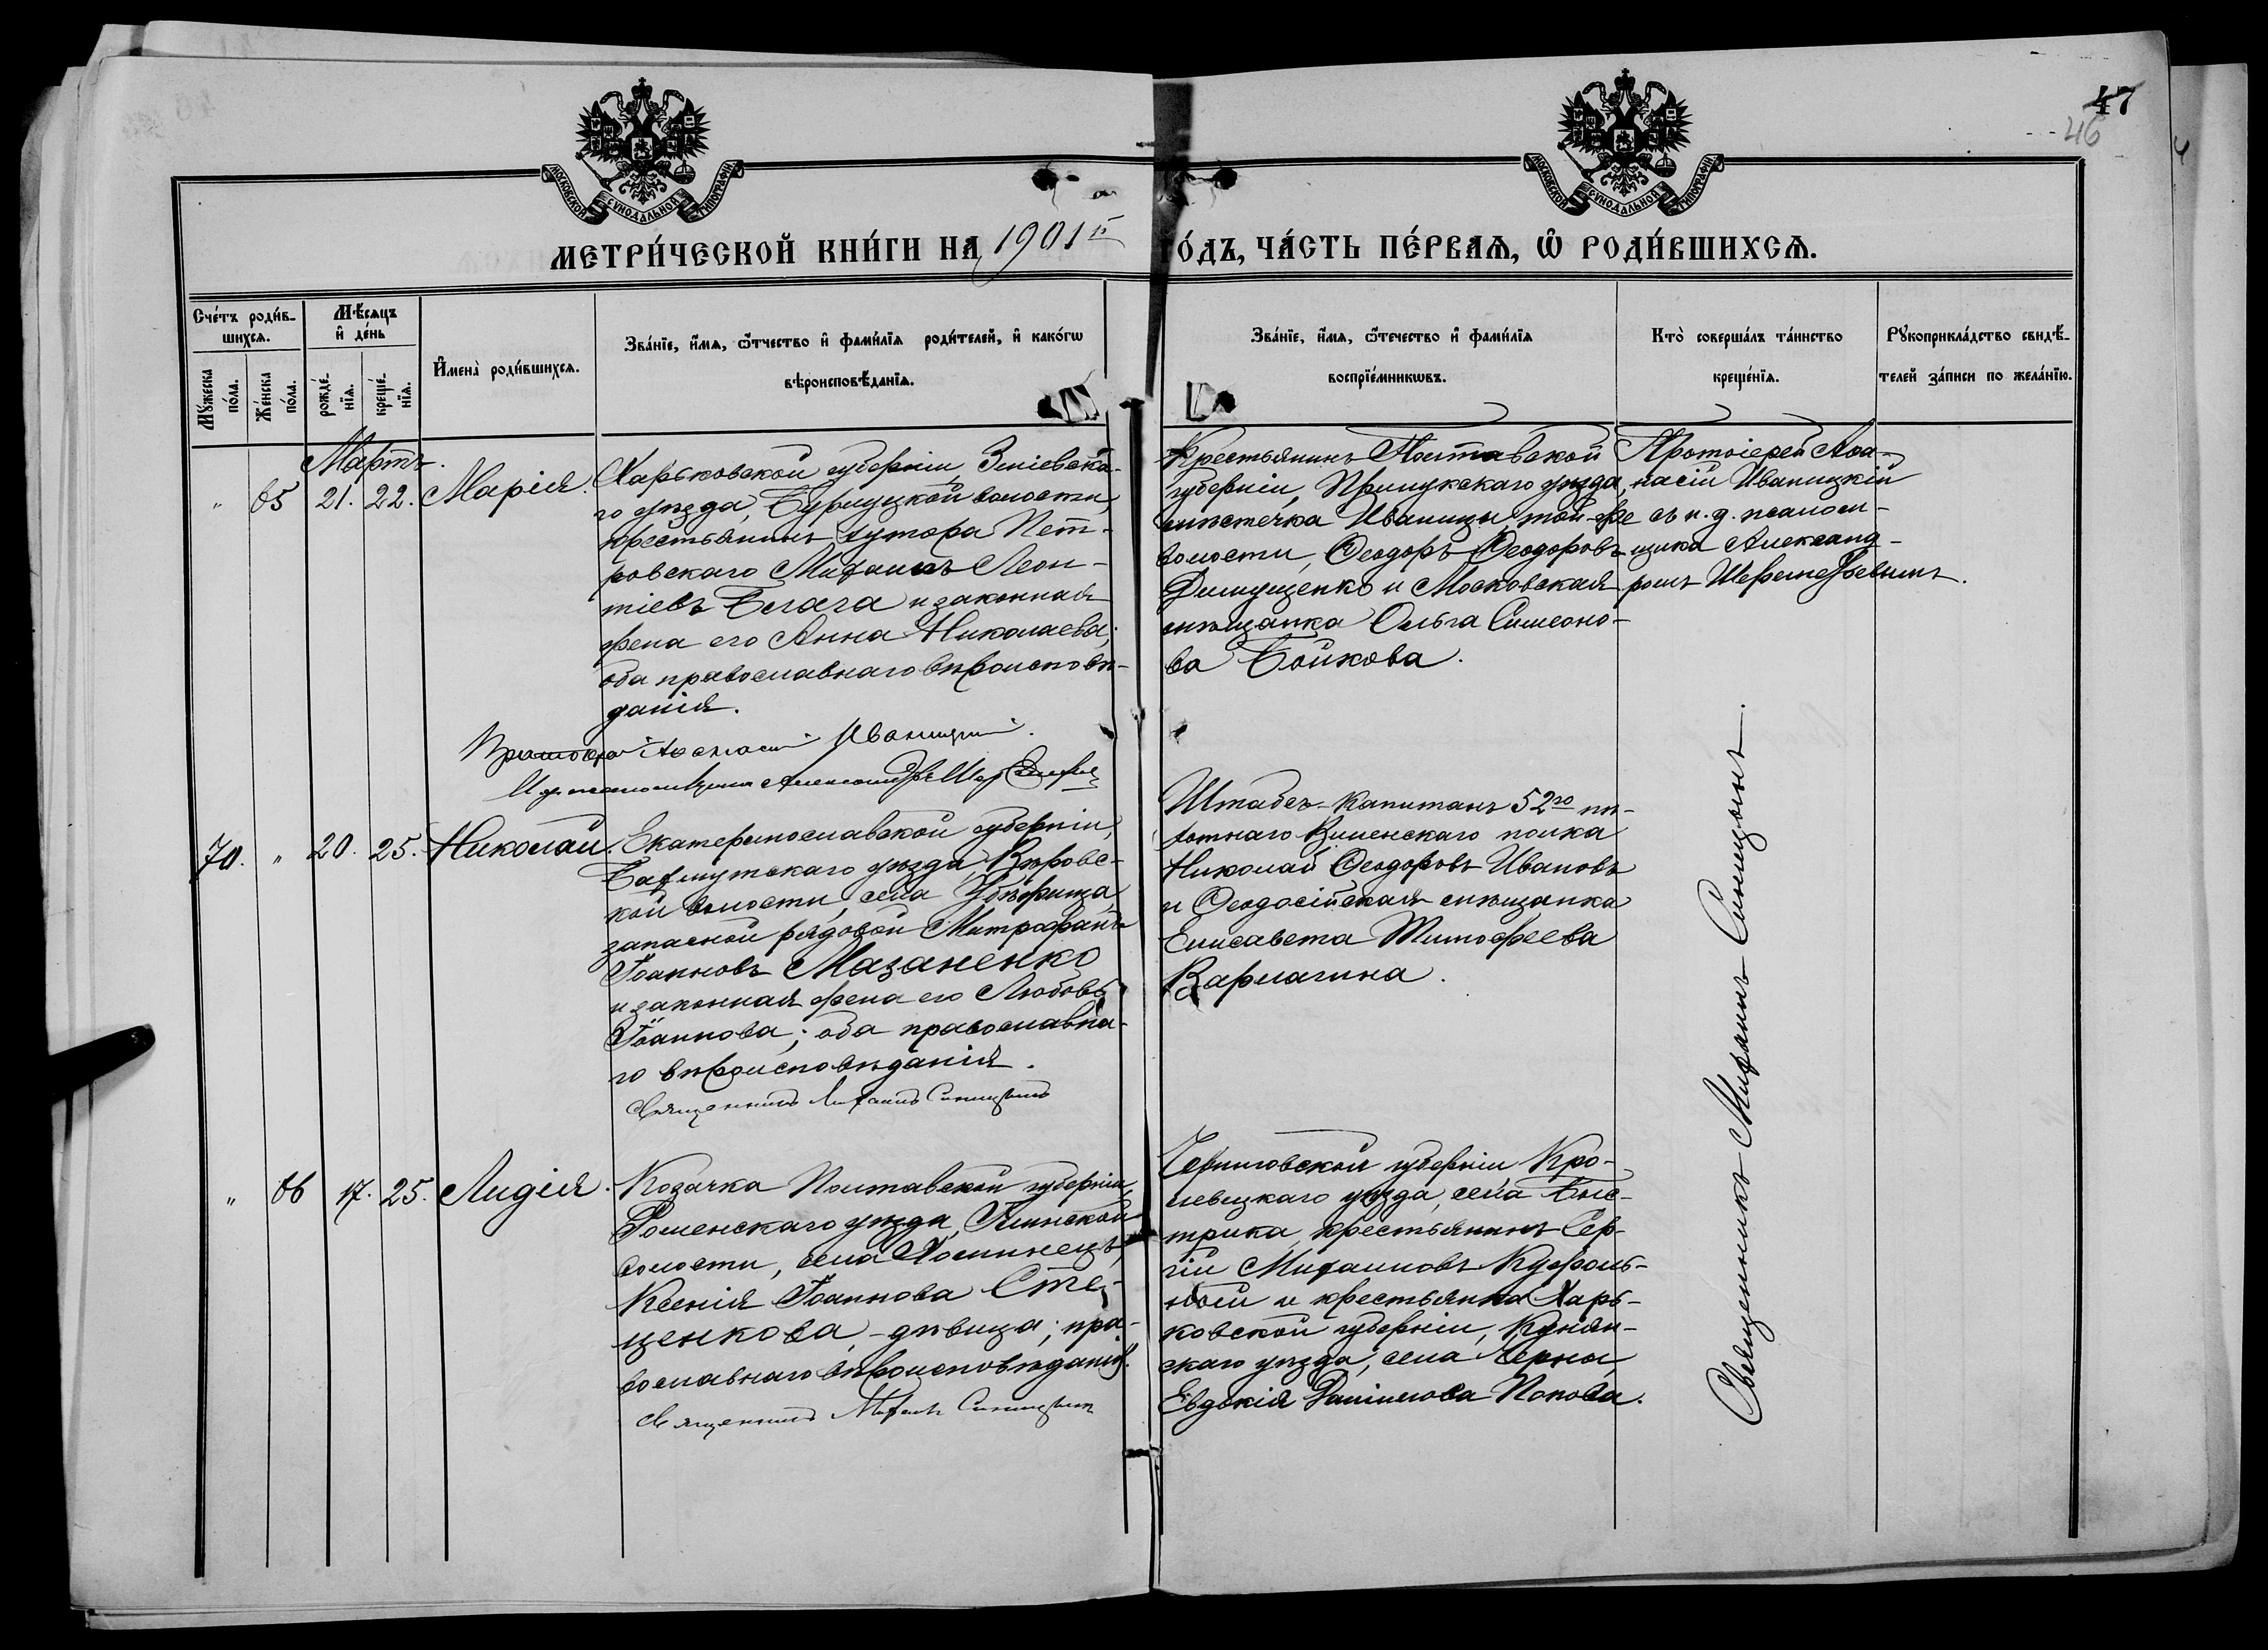 47
46
МОСКОВСКОЙ СѴНОДАЛЬНОЙ ТИПОГРАФІИ
МОСКОВСКОЙ СѴНОДАЛЬНОЙ ТИПОГРАФІИ
МЕТРИ́ЧЕСКОЙ КНИ́ГИ НА 1901й ГО́ДЪ, ЧА́СТЬ ПЕ́РВАѦ, Ѡ҆ РОДИ́ВШИХСѦ.
Сче́тъ роди́в-
шихсѧ.
Мꙋ́жеска по́ла.
Же́нска по́ла.
Мѣ́сѧцъ
и҆ де́нь
рожде́-
нїѧ.
креще́-
нїѧ.
И҆мена̀ роди́вшихсѧ.
Зва́нїе, и҆́мѧ, ѻ҆́тчество и҆ фами́лїѧ роди́телей, и҆ како́гѡ
вѣроисповѣ́данїѧ.
Зва́нїе, и҆́мѧ, ѻ҆́течество и҆ фами́лїѧ
воспрїе́мникѡвъ.
Кто̀ соверша́лъ та́инство
креще́нїѧ.
Рꙋкоприкла́дство свидѣ́-
телей за́писи по жела́нїю.
Мартъ.
" 65 21. 22. Марія.
Харьковской губерніи, Зміевска-
го уѣзда, Бурлуцкой волости,
крестьянинъ хутора Пет-
ровскаго Михаилъ Леон-
тіевъ Бегага и законная
жена его Анна Николаева;
оба православнаго вѣроисповѣ-
данія.
Крестьянинъ Полтавской
губерніи, Прилукскаго уѣзда,
мѣстечка Иваницы, той-же
волости, Ѳеодоръ Ѳеодоровъ
Димущенко и Московская
мѣщанка Ольга Симеоно-
ва Бойкова.
Протоіерей Аѳа-
насій Иваницкій
съ и. д. псалом-
щика Александ-
ромъ Шереметьевымъ.
Протоіерей Аѳанасій Иваницкій.
И. д. псаломщика Александръ
70. " 20. 25. Николай.
Екатеринославской губерніи,
Бахмутскаго уѣзда, Вѣровс-
кой волости, села
запасной рядовой Митрофанъ
Іоанновъ Мазаненко
и законная жена его Любовь
Іоаннова; оба православна-
го вѣроисповѣданія.
Священникъ Михаилъ Синицынъ
Штабсъ-Капитанъ 52го пѣ-
хотнаго Виленскаго полка
Николай Ѳеодоровъ Ивановъ
и Ѳеодосійская мѣщанка
Елисавета Тимофеева
Варлагина.
Священникъ Михаилъ Синицынъ.
" 66 17. 25. Лидія.
Козачка Полтавской губерніи,
Роменскаго уѣзда, Глинской
волости, села Хоминецъ,
Ксенія Іоаннова Сте-
ценкова, - дѣвица; пра-
вославнаго вѣроисповѣданія.
Священникъ Михаилъ Синицынъ
Черниговской губерніи Кро-
левецкаго уѣзда, села Быс-
трика, крестьянинъ Сер-
гій Михаиловъ
и крестьянка Харь-
ковской губерніи, Купян-
скаго уѣзда, села
Евдокія Даніилова Попова.